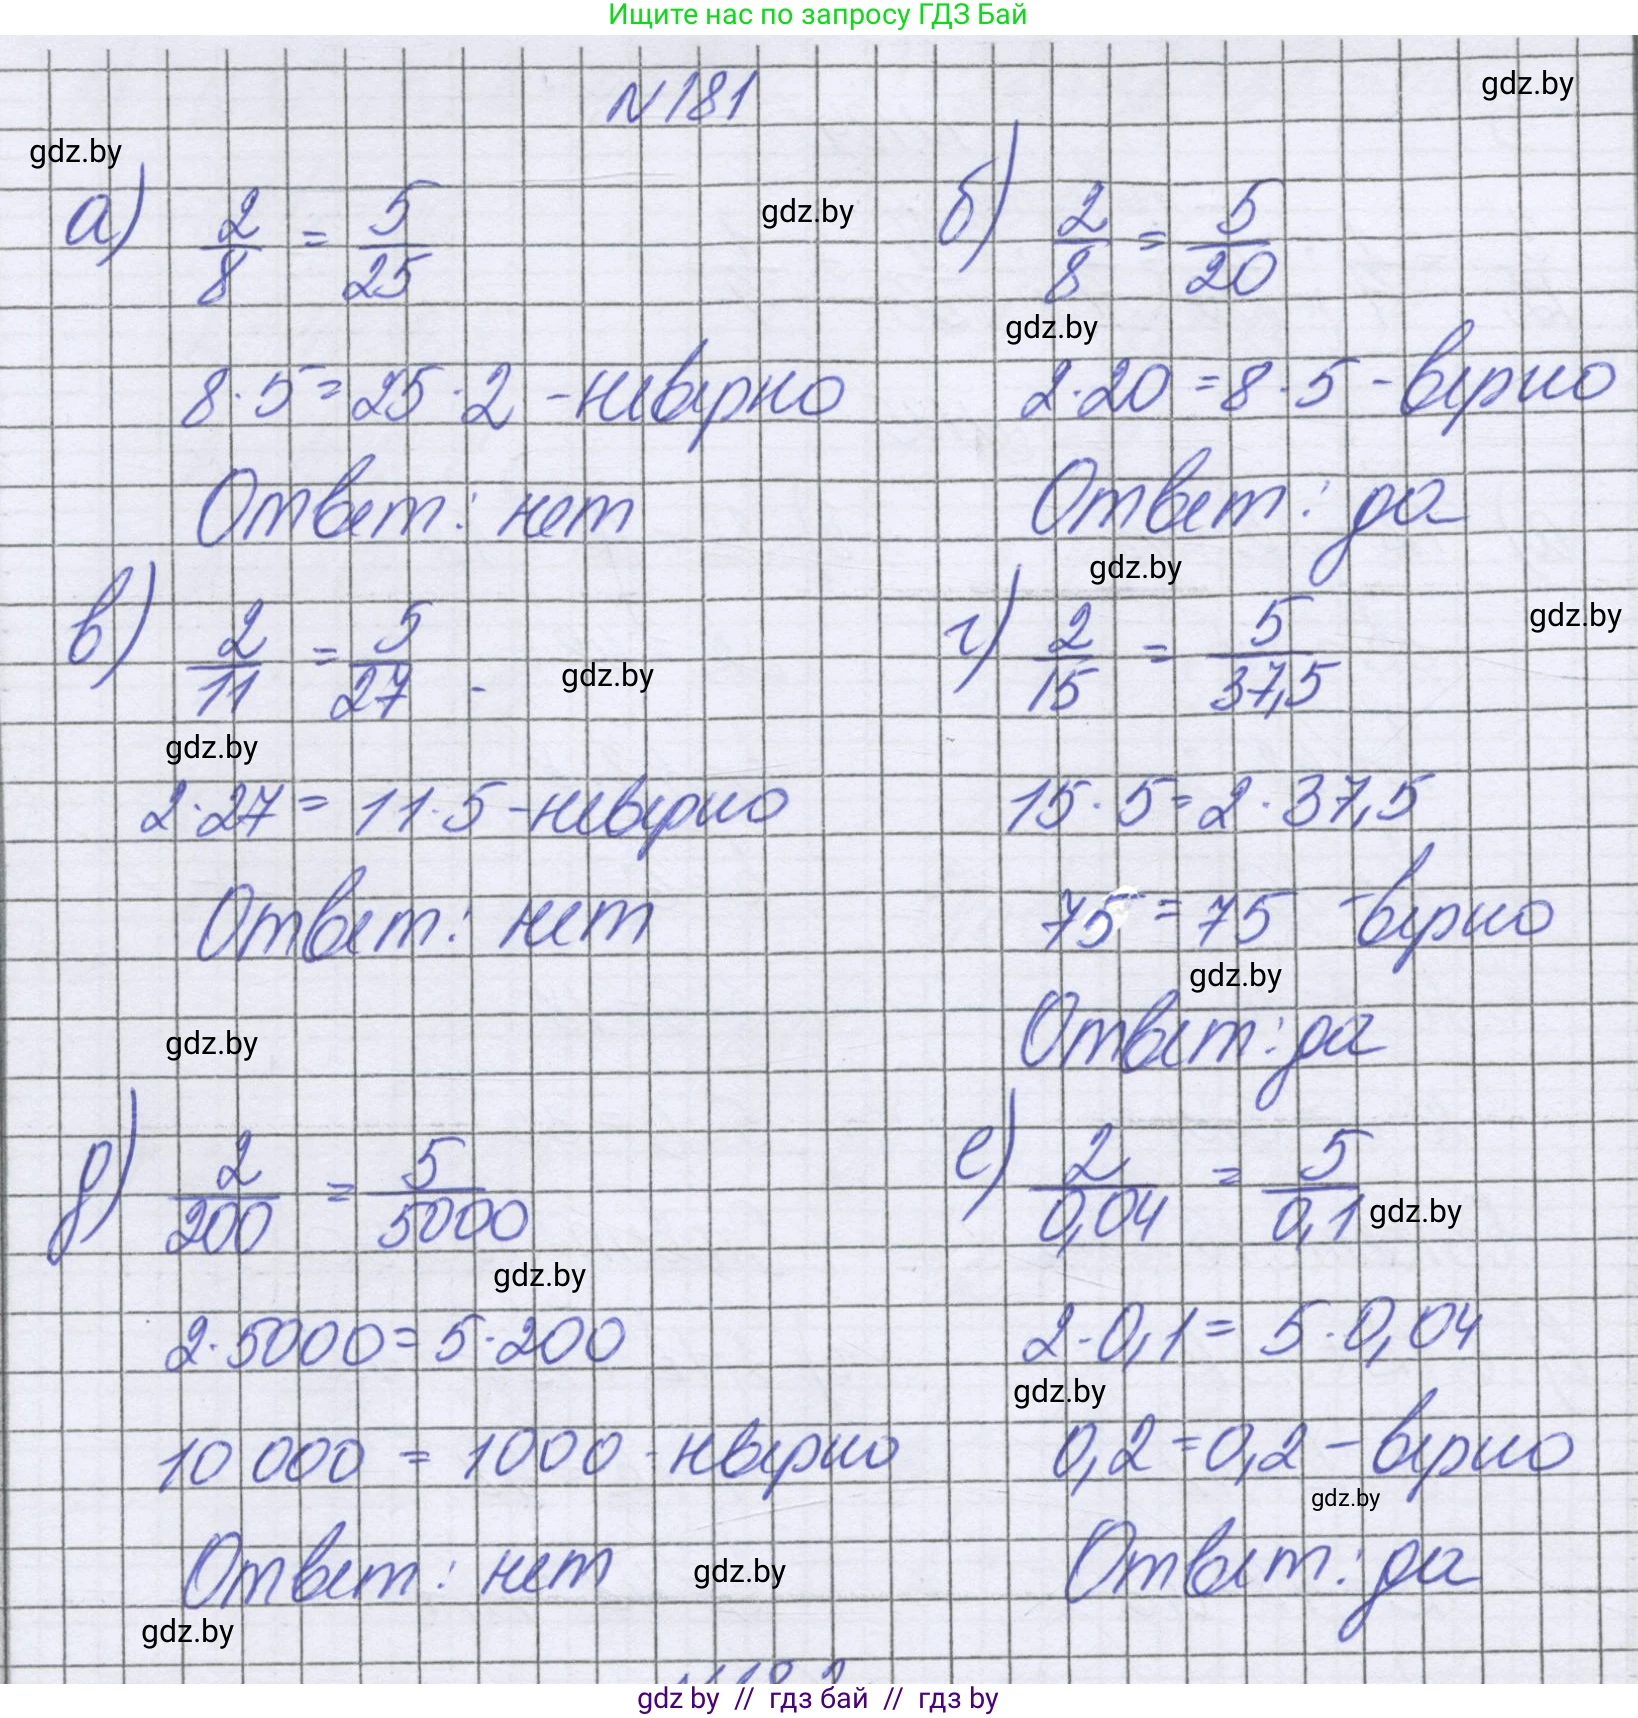 Ищите нас по запросу ГДЗ Бай
N181
gdz.by
gdz.by
а) 2/8 = 5/25
gdz.by
б) 2/8 = 5/20
gdz.by
8·5=25·2 - неверно
2·20=8·5 - верно
Ответ: нет
Ответ: да
gdz.by
gdz.by
в) 2/11 = 5/27
gdz.by
г) 2/15 = 5/37,5
gdz.by
2·27=11·5 - неверно
15·5=2·37,5
Ответ: нет
75=75 - верно
gdz.by
gdz.by
Ответ: да
д) 2/200 = 5/5000
е) 2/0,04 = 5/0,1
gdz.by
gdz.by
2·5000=5·200
2·0,1=5·0,04
gdz.by
10 000 = 1000 - неверно
0,2=0,2 - верно
gdz.by
Ответ: нет
gdz.by
Ответ: да
gdz.by
gdz by // гдз бай // гдз by